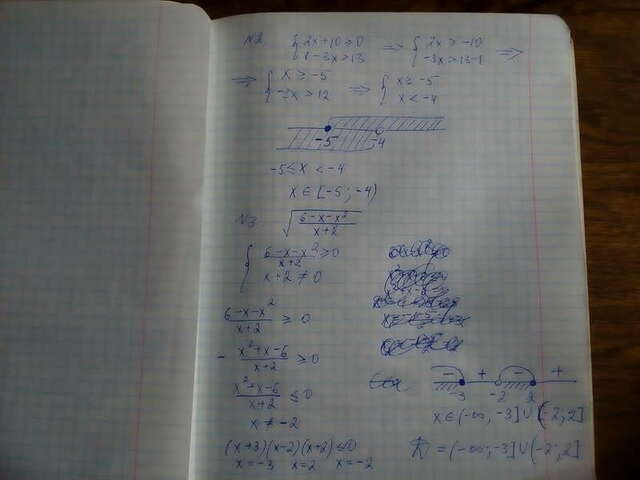 N2 { 2x+10≥0 => { 2x ≥ -10 =>
1-3x>13 -3x>13-1
=> { x ≥ -5 => { x ≥ -5
-3x>12 x < -4
-5 -4
-5 ≤ x < -4
x ∈ [-5; -4)
N3 √((6-x-x²)/(x+2))
{ (6-x-x²)/(x+2) ≥0
x+2 ≠ 0
(6-x-x²)/(x+2) ≥ 0
- (x²+x-6)/(x+2) ≥0
(x²+x-6)/(x+2) ≤0
x ≠ -2
(x+3)(x-2)(x+2) ≤0
x=-3 x=2 x=-2
- + - +
-3 -2 2
x∈(-∞; -3]∪(-2; 2]
= (-∞; -3]∪(-2; 2]